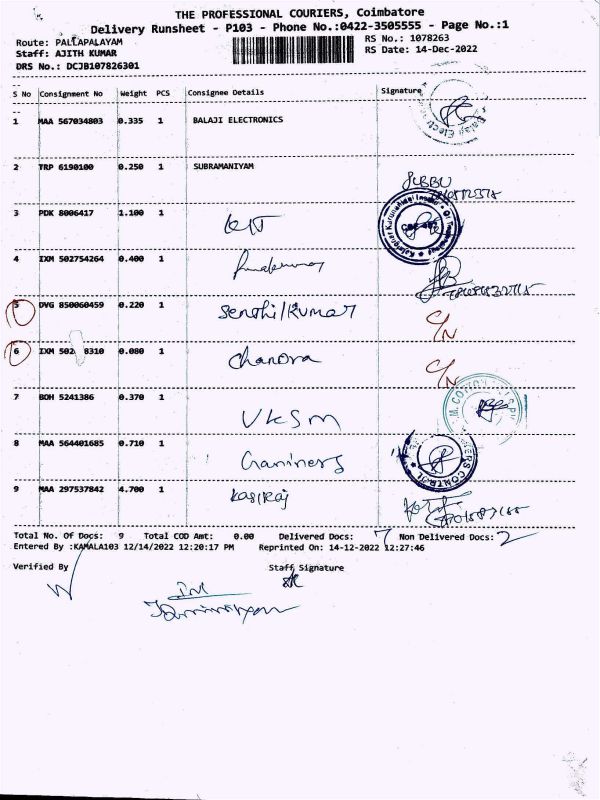 THE PROFESSIONAL COURIERS, Coimbatore
Delivery Runsheet - P103 - Phone No.:0422-3505555 - Page No.:1
Route: PALLAPALAYAM RS No.: 1078263
Staff: AJITH KUMAR RS Date: 14-Dec-2022
DRS No.: DCJB107826301
S No Consignment No Weight PCS Consignee Details Signature
1 MAA 567034803 0.335 1 BALAJI ELECTRONICS
2 TRP 6190100 0.250 1 SUBRAMANIYAM
3 PDK 8006417 1.100 1 KIT
4 IXM 502754264 0.400 1
5 DVG 850060459 0.220 1 Senthilkumar C/N
6 IXM 502 8310 0.080 1 Chandra C/N
7 BOH 5241386 0.370 1 VKSM
8 MAA 564401685 0.710 1 Gariners
9 MAA 297537842 4.700 1 Kasiraj
Total No. Of Docs: 9 Total COD Amt: 0.00 Delivered Docs: 7 Non Delivered Docs: 2
Entered By :KAMALA103 12/14/2022 12:20:17 PM Reprinted On: 14-12-2022 12:27:46
Verified By Staff Signature